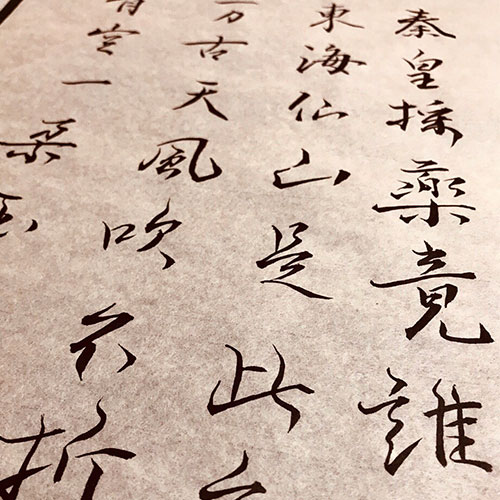 秦皇採藥竟誰
東海仙山是此
万古天風吹不折
青空一朵